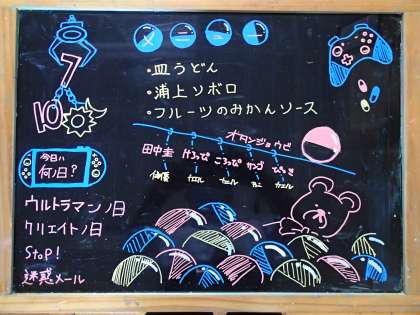 7
10
メニュー
・皿うどん
・浦上ソボロ
・フルーツのみかんソース
オタンジョウビ
田中圭 けろっぴ ころっぴ
俳優 カエル カエル カニ カエル
今日ハ
何ノ日?
ウルトラマンノ日
クリエイトノ日
StoP!
迷惑メール